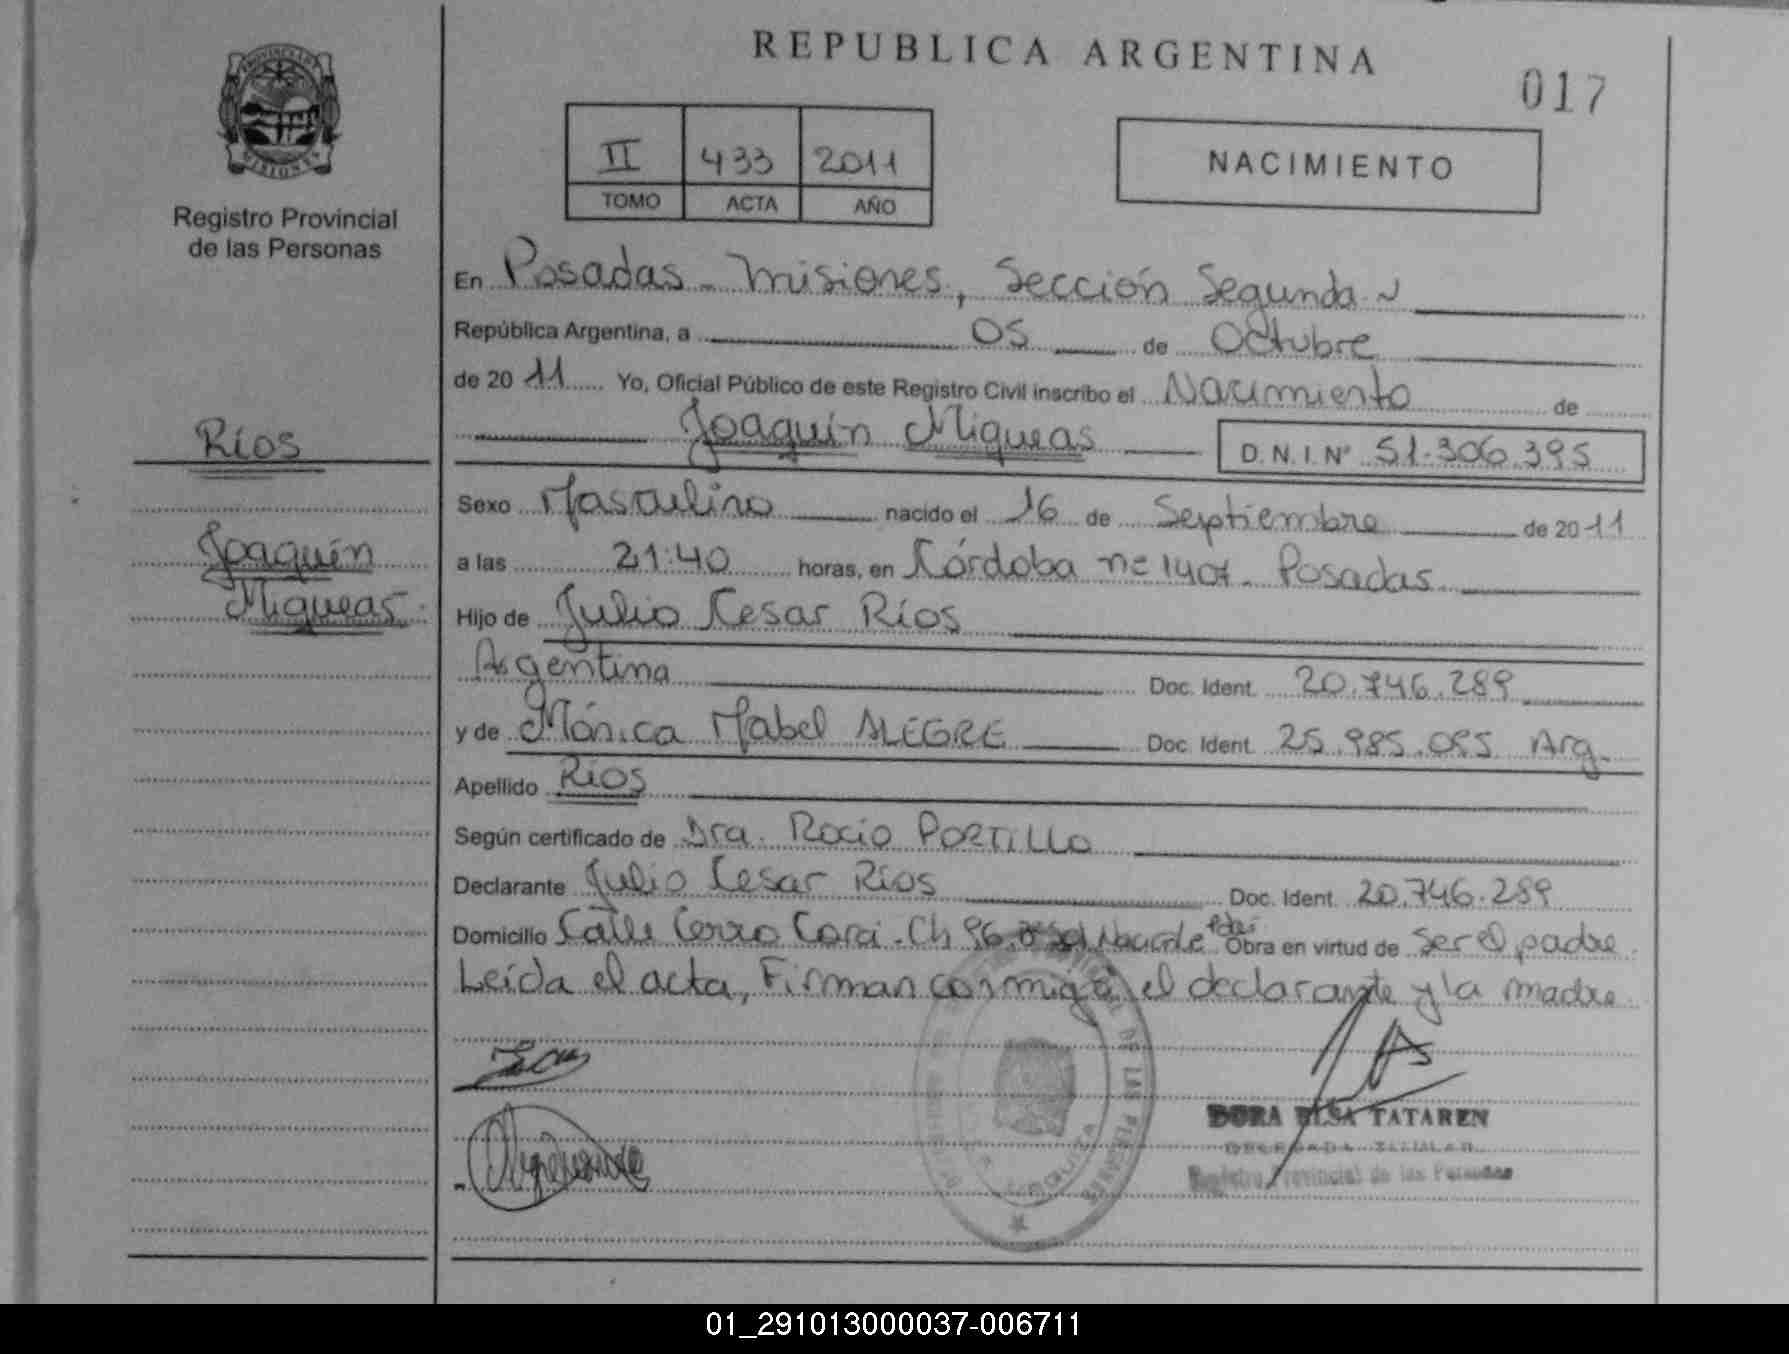 REPUBLICA ARGENTINA
017
PROVINCIA DE
MISIONES
Registro Provincial
de las Personas
II 433 2011
TOMO ACTA AÑO
NACIMIENTO
En Posadas - Misiones, Sección Segunda
República Argentina, a 05 de Octubre
de 2011 Yo, Oficial Público de este Registro Civil inscribo el Nacimiento de
Joaquín Miqueas D.N.I. Nº 51.306.395
Ríos
Joaquín
Miqueas
Sexo Masculino nacido el 16 de Septiembre de 2011
a las 21:40 horas, en Córdoba nº 1407 - Posadas
Hijo de Julio Cesar Ríos
Argentina Doc. Ident. 20.746.289
y de Mónica Mabel ALEGRE Doc. Ident. 25.985.055 Arg.
Apellido Ríos
Según certificado de Dra. Rocio PORTILLO
Declarante Julio Cesar Ríos Doc. Ident. 20.746.289
Domicilio Calle Cerro Cora. Ch 96. Obra en virtud de ser el padre.
Leída el acta, Firman conmigo, el declarante y la madre.
DORA ELSA TATAREN
DELEGADA TITULAR
Registro Provincial de las Personas
DE LAS PERSONAS
01_291013000037-006711